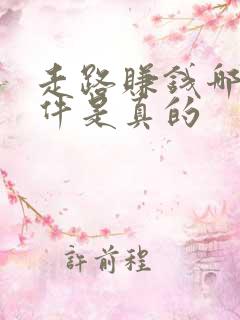 走路賺錢哪
件是真的
許前程